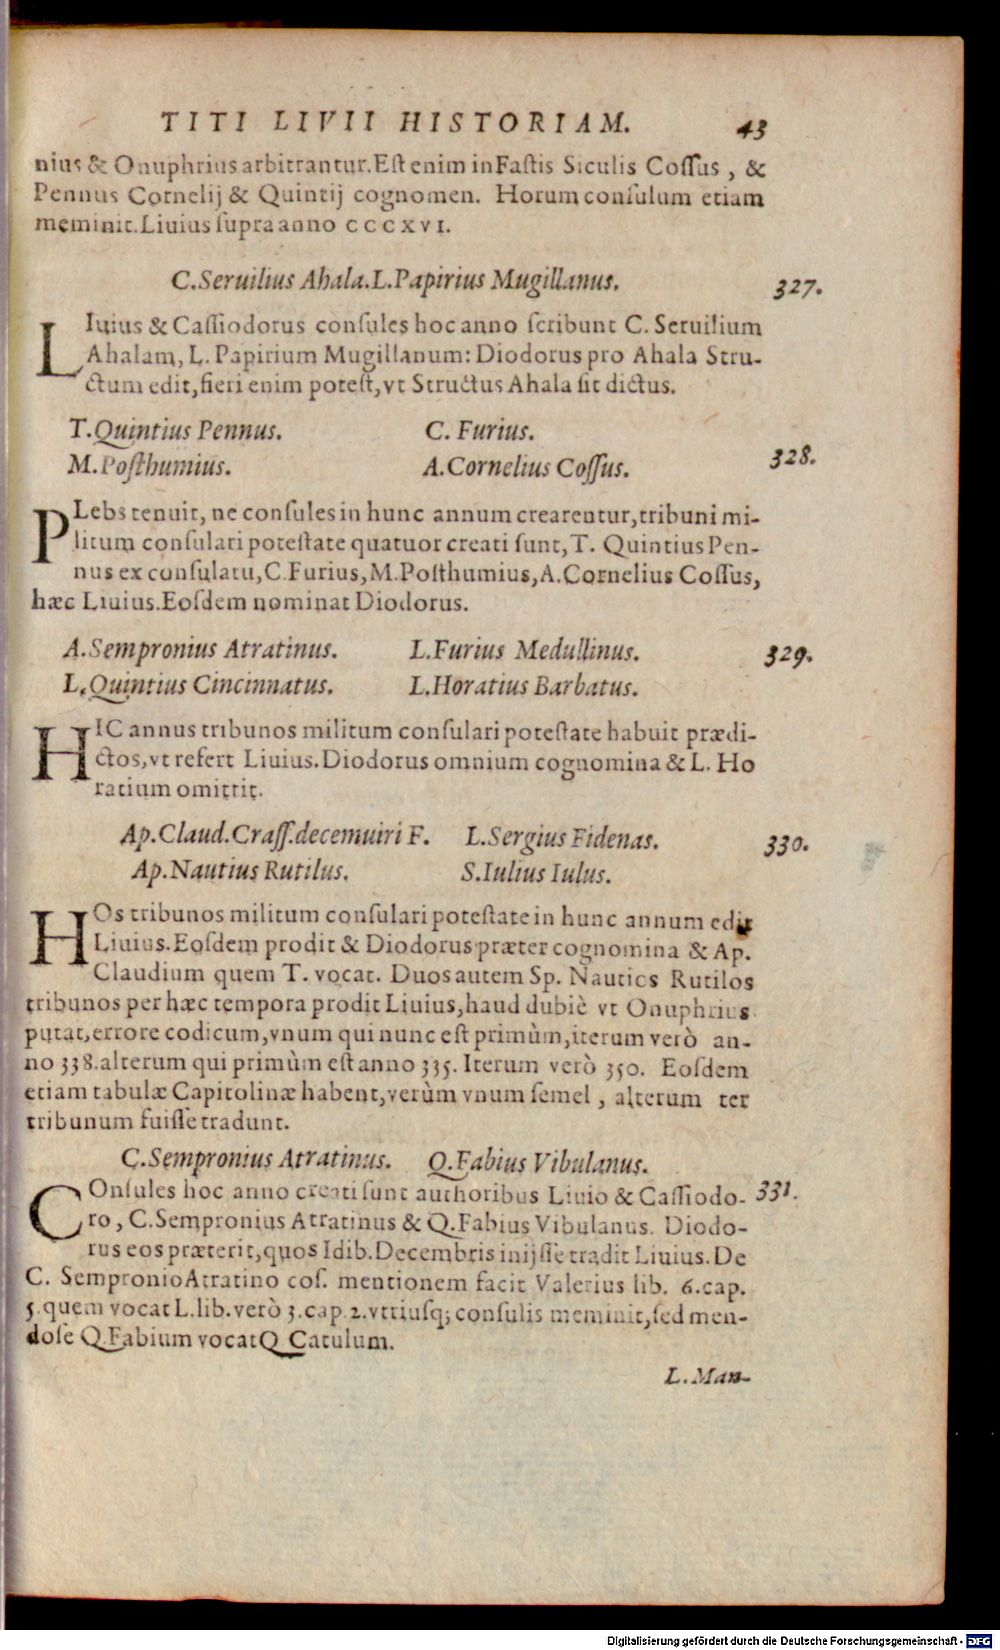 TITI LIVII HISTORIAM. 43
nius & Onuphrius arbitrantur. Est enim in Fastis Siculis Cossus, &
Pennus Cornelij & Quintij cognomen. Horum consulum etiam
meminit. Liuius supra anno CCCXVI.
C. Seruilius Ahala. L. Papirius Mugillanus. 327.
LIuius & Cassiodorus consules hoc anno scribunt C. Seruilium
Ahalam, L. Papirium Mugillanum: Diodorus pro Ahala Stru-
ctum edit, fieri enim potest, vt Structus Ahala sit dictus.
T. Quintius Pennus. C. Furius.
M. Posthumius. A. Cornelius Cossus. 328.
PLebs tenuit, ne consules in hunc annum crearentur, tribuni mi-
litum consulari potestate quatuor creati sunt, T. Quintius Pen-
nus ex consulatu, C. Furius, M. Posthumius, A. Cornelius Cossus,
hæc Liuius. Eosdem nominat Diodorus.
A. Sempronius Atratinus. L. Furius Medullinus. 329.
L. Quintius Cincinnatus. L. Horatius Barbatus.
HIC annus tribunos militum consulari potestate habuit prædi-
ctos, vt refert Liuius. Diodorus omnium cognomina & L. Ho
ratium omittit.
Ap. Claud. Crass. decemuiri F. L. Sergius Fidenas. 330.
Ap. Nautius Rutilus. S. Iulius Iulus.
HOs tribunos militum consulari potestate in hunc annum edit
Liuius. Eosdem prodit & Diodorus præter cognomina & Ap.
Claudium quem T. vocat. Duos autem Sp. Nautios Rutilos
tribunos per hæc tempora prodit Liuius, haud dubiè vt Onuphrius
putat, errore codicum, vnum qui nunc est primùm, iterum verò an-
no 338. alterum qui primùm est anno 335. Iterum verò 350. Eosdem
etiam tabulæ Capitolinæ habent, verùm vnum semel, alterum ter
tribunum fuisse tradunt.
C. Sempronius Atratinus. Q. Fabius Vibulanus.
COnsules hoc anno creati sunt authoribus Liuio & Cassiodo- 331.
ro, C. Sempronius Atratinus & Q. Fabius Vibulanus. Diodo-
rus eos præterit, quos Idib. Decembris inijsse tradit Liuius. De
C. Sempronio Atratino cos. mentionem facit Valerius lib. 6. cap.
5. quem vocat L. lib. verò 3. cap. 2. vtriusq; consulis meminit, sed men-
dose Q. Fabium vocat Q Catulum.
L. Man-
Digitalisierung gefördert durch die Deutsche Forschungsgemeinschaft - DFG